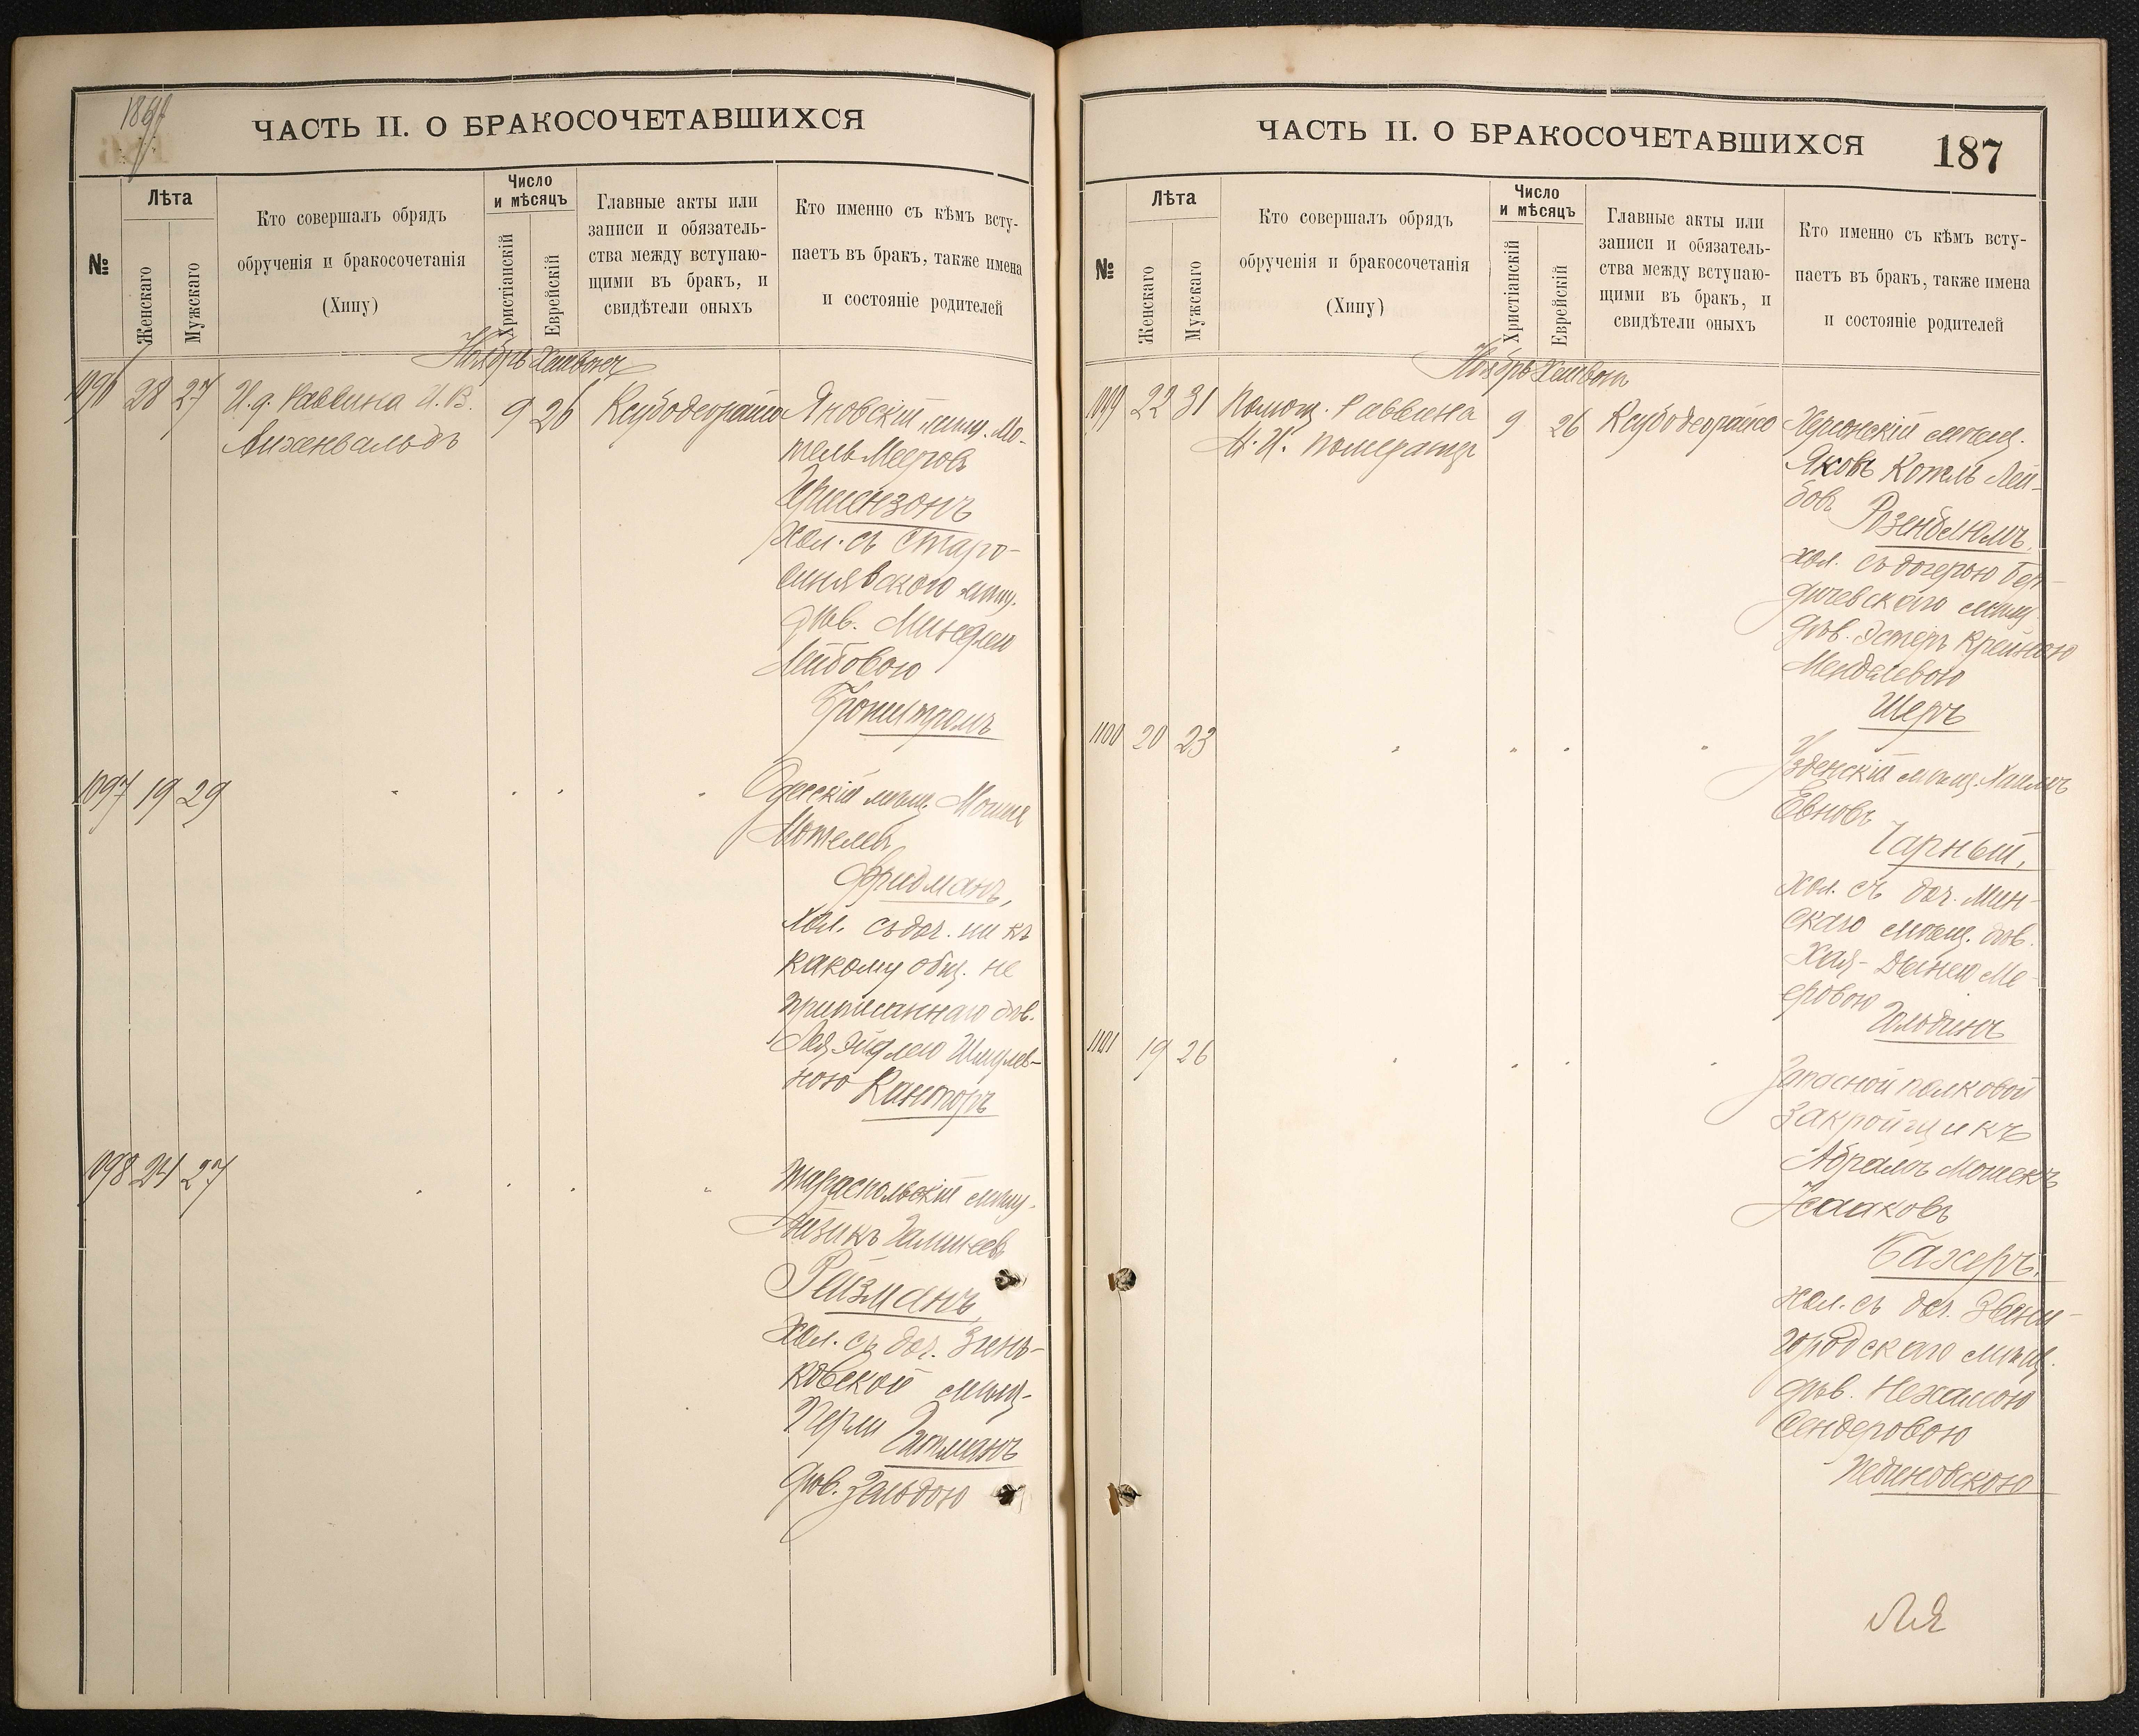 189
ЧАСТЬ II. О БРАКОСОЧЕТАВШИХСЯ
№
Лѣта
Женскаго
Мужскаго
Кто совершалъ обрядъ
обрученія и бракосочетанія
(Хипу)
Число
и мѣсяцъ
Христіанскій
Еврейскій
Главные акты или
записи и обязатель-
ства между вступаю-
щими въ бракъ, и
свидѣтели оныхъ
Кто именно съ кѣмъ всту-
паетъ въ бракъ, также имена
и состояніе родителей
Ноябрь Хешвонъ
1096 28 27 И. д. Раввина И. В. 9 26 Ксубодеорайсо Яновскій мѣщ. Мо-
Айхенвальдъ
тель Мееровъ
Гершензонъ
хол. съ Старо-
синявскою мѣщ.
дѣв. Миндлею
Лейбовою
1097 19 29 " " " " Одесскій мѣщ. Мошка
Мотелевъ
Фридманъ,
хол. съ доч. ни къ
какому общ. не
приписаннаго дѣв.
Лея Эйдлею Шмулев-
ною Канторъ
1098 24 27 " " " " Тираспольскій мѣщ.
Айзикъ
Райзманъ,
хол. съ доч. Зинь-
ковской мѣщ.
Перли Гитманъ
дѣв. Зельдою
ЧАСТЬ II. О БРАКОСОЧЕТАВШИХСЯ
187
№
Лѣта
Женскаго
Мужскаго
Кто совершалъ обрядъ
обрученія и бракосочетанія
(Хипу)
Число
и мѣсяцъ
Христіанскій
Еврейскій
Главные акты или
записи и обязатель-
ства между вступаю-
щими въ бракъ, и
свидѣтели оныхъ
Кто именно съ кѣмъ всту-
паетъ въ бракъ, также имена
и состояніе родителей
Ноябрь Хешвонъ
1099 22 31 Помощ. Раввина 9 26 Ксубодеорайсо Херсонскій мѣщ.
И. И. Померанцъ
Яковъ Копель Лей-
бовъ Розенблюмъ,
хол. съ дочерью Бер-
дичевскаго мѣщ.
дѣв. Эстеръ Крейною
Менделевою
Шеръ
1100 20 23 " " " " Узденскій мѣщ. Хаимъ
Евновъ
Чарный,
хол. съ доч. Мин-
скаго мѣщ. дѣв.
Хая-Двинею Ме-
еровою
Гольдинъ
1101 19 26 " " " " Запасной полковой
закройщикъ
Абрамъ Мошекъ
Исааковъ
Бахеръ,
хол. съ доч. Звени-
городскаго мѣщ.
дѣв. Нехамою
Сендеровою